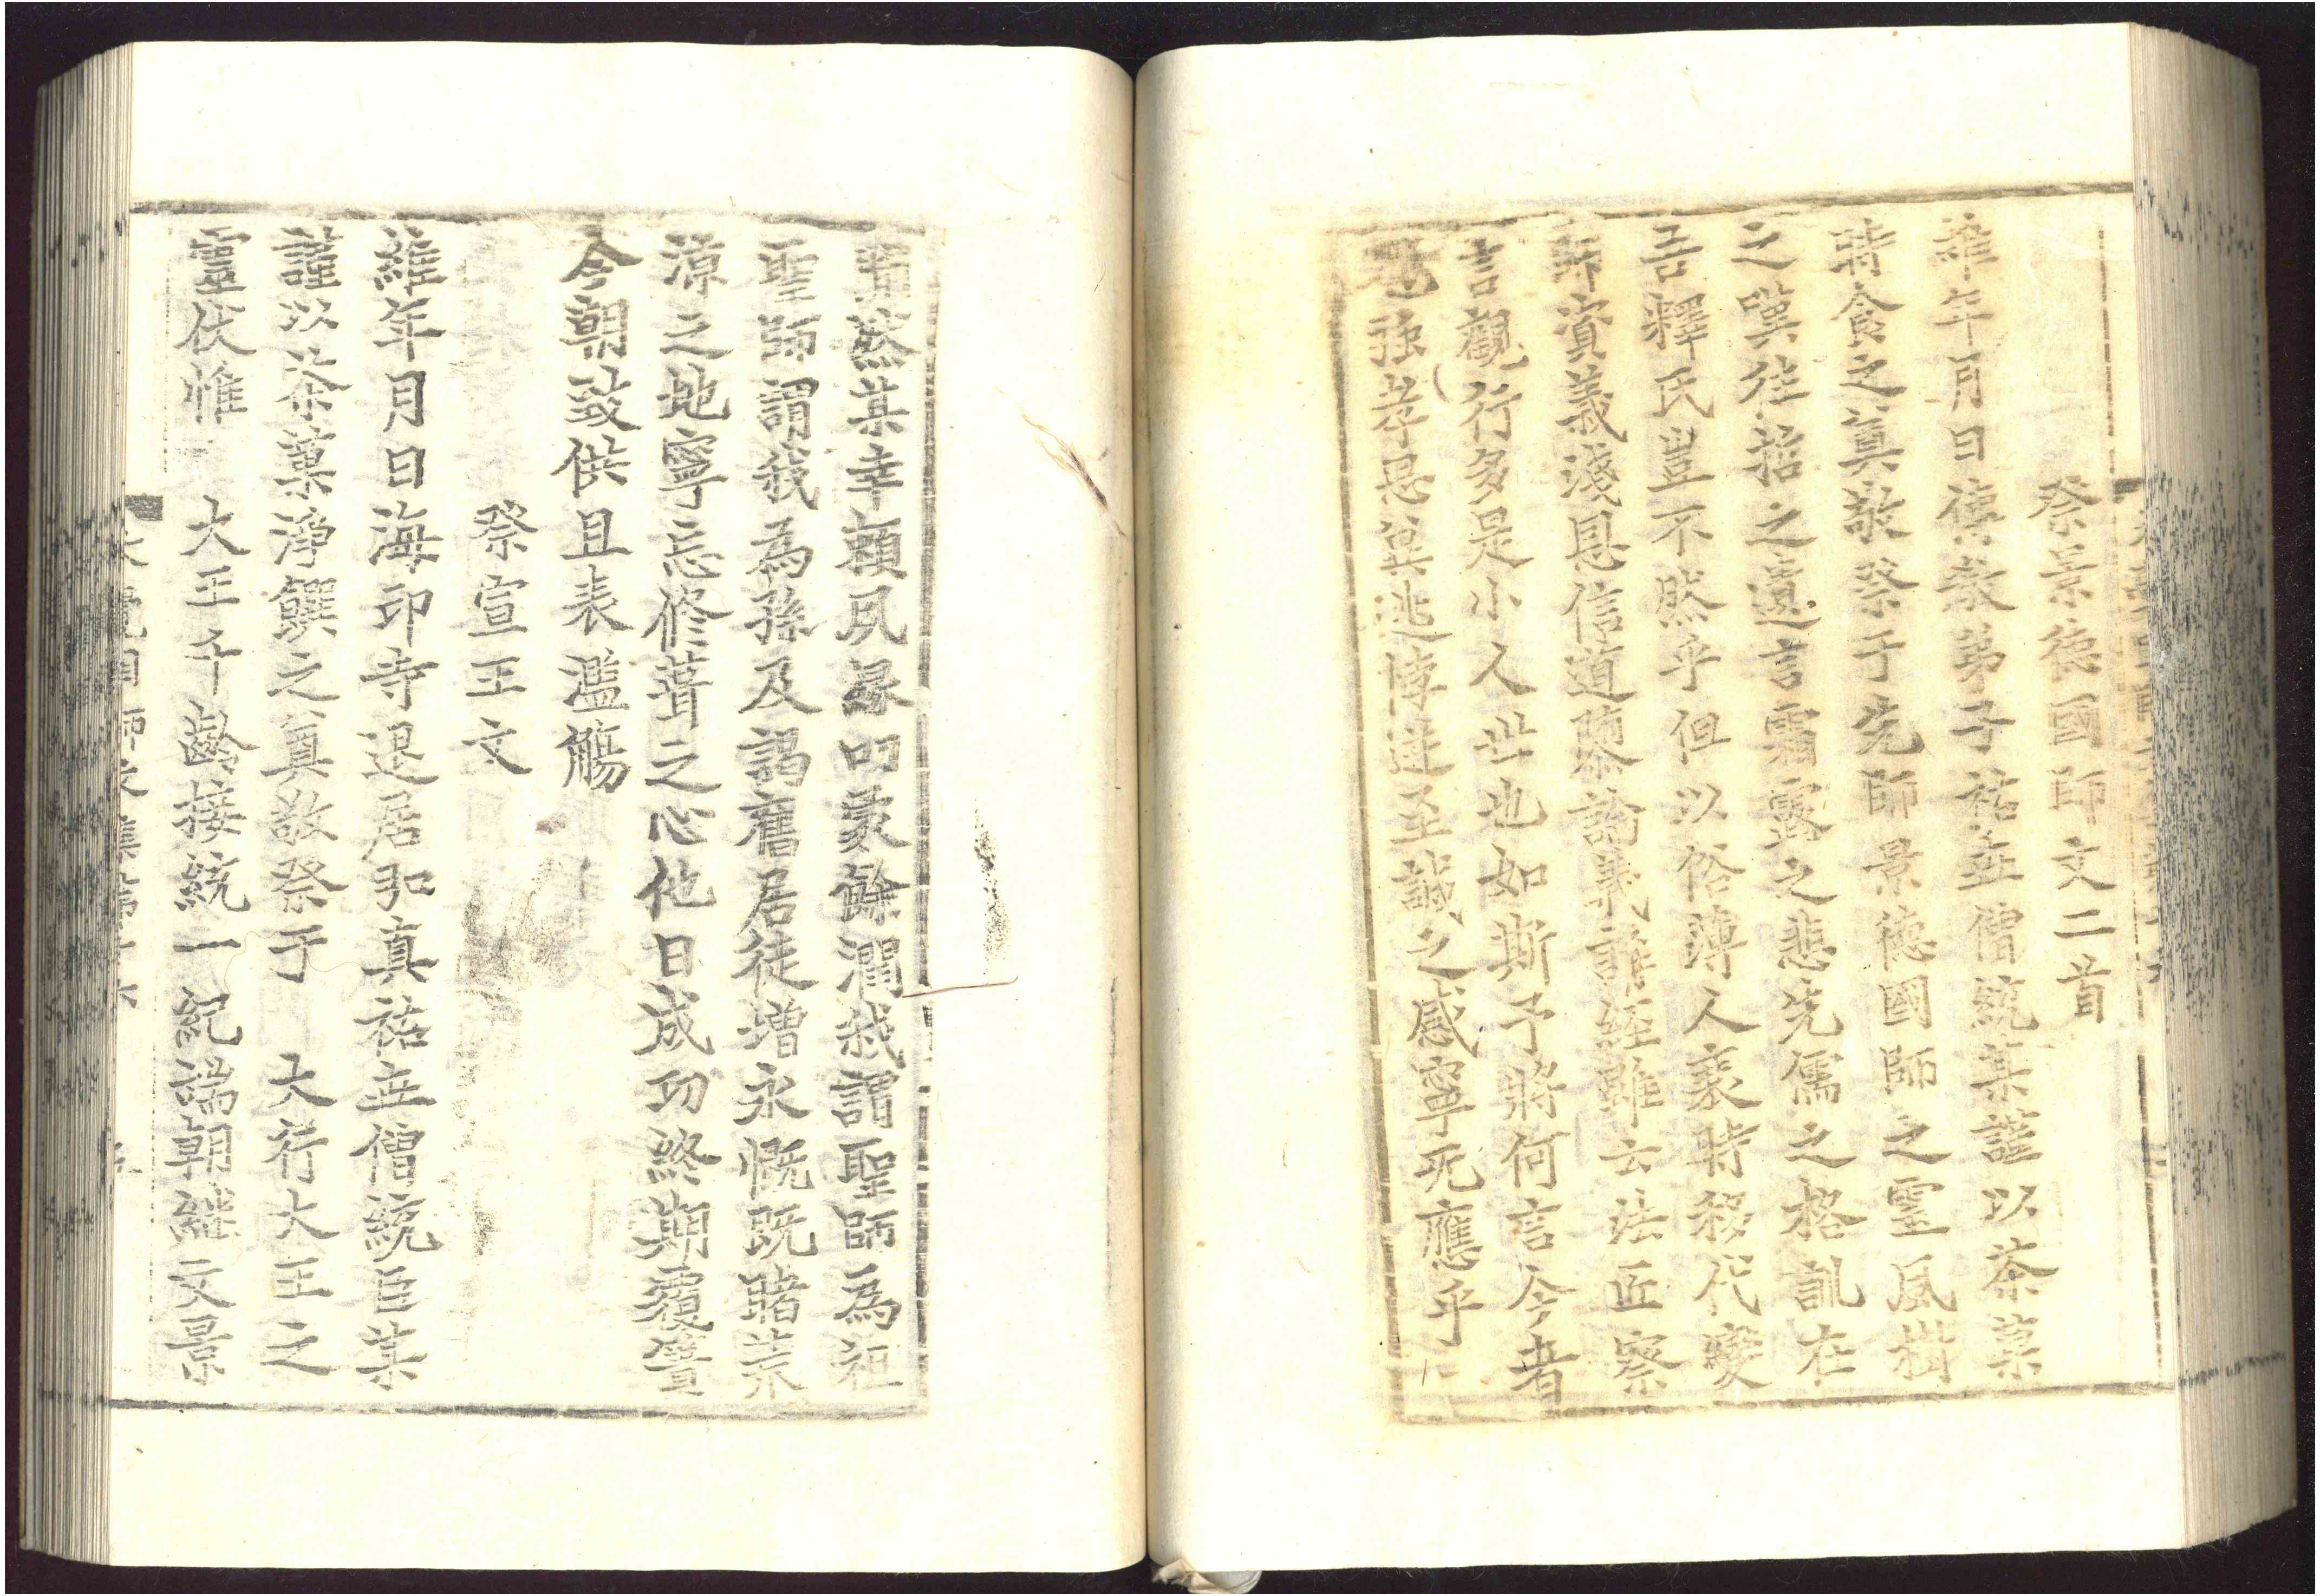 祭景德國師文二首
維年月日傳教弟子祐世僧統某謹以茶菓
時食之奠敬祭于先師景德國師之靈風樹
之嘆往哲之遺言霜露之悲先儒之格訓在
吾釋氏豈不然乎但以俗薄人衰時移代變
師資義淺恩信道隳論義講經雖云法匠察
言觀行多是小人世也如斯予將何言今者
孤孝思莫逃悼達至誠之感寧死應乎
然某幸賴風緣叨蒙餘潤哉謂聖師爲祖
聖師謂我爲孫及謁舊居徒增永慨既睹荒
涼之地寧忘修葺之心他日成功終期覆簣
今朝致供且表濫觴
祭宣王文
維年月日海印寺退居弘真祐世僧統臣某
謹以茶菓淨饌之奠敬祭于 大行大王之
靈伏惟 大王午齡接統一紀 朝 天景
大覺國師文集第十六